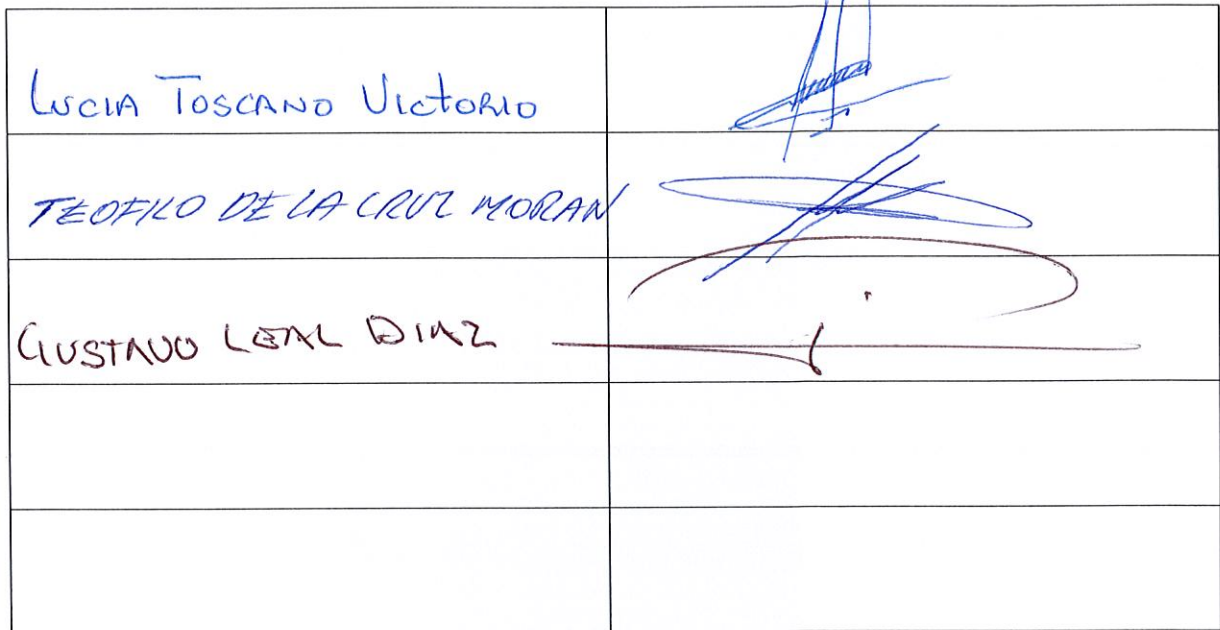 Lucia Toscano Victorio
TEOFILO DE LA CRUZ MORAN
GUSTAVO LEAL DIAZ